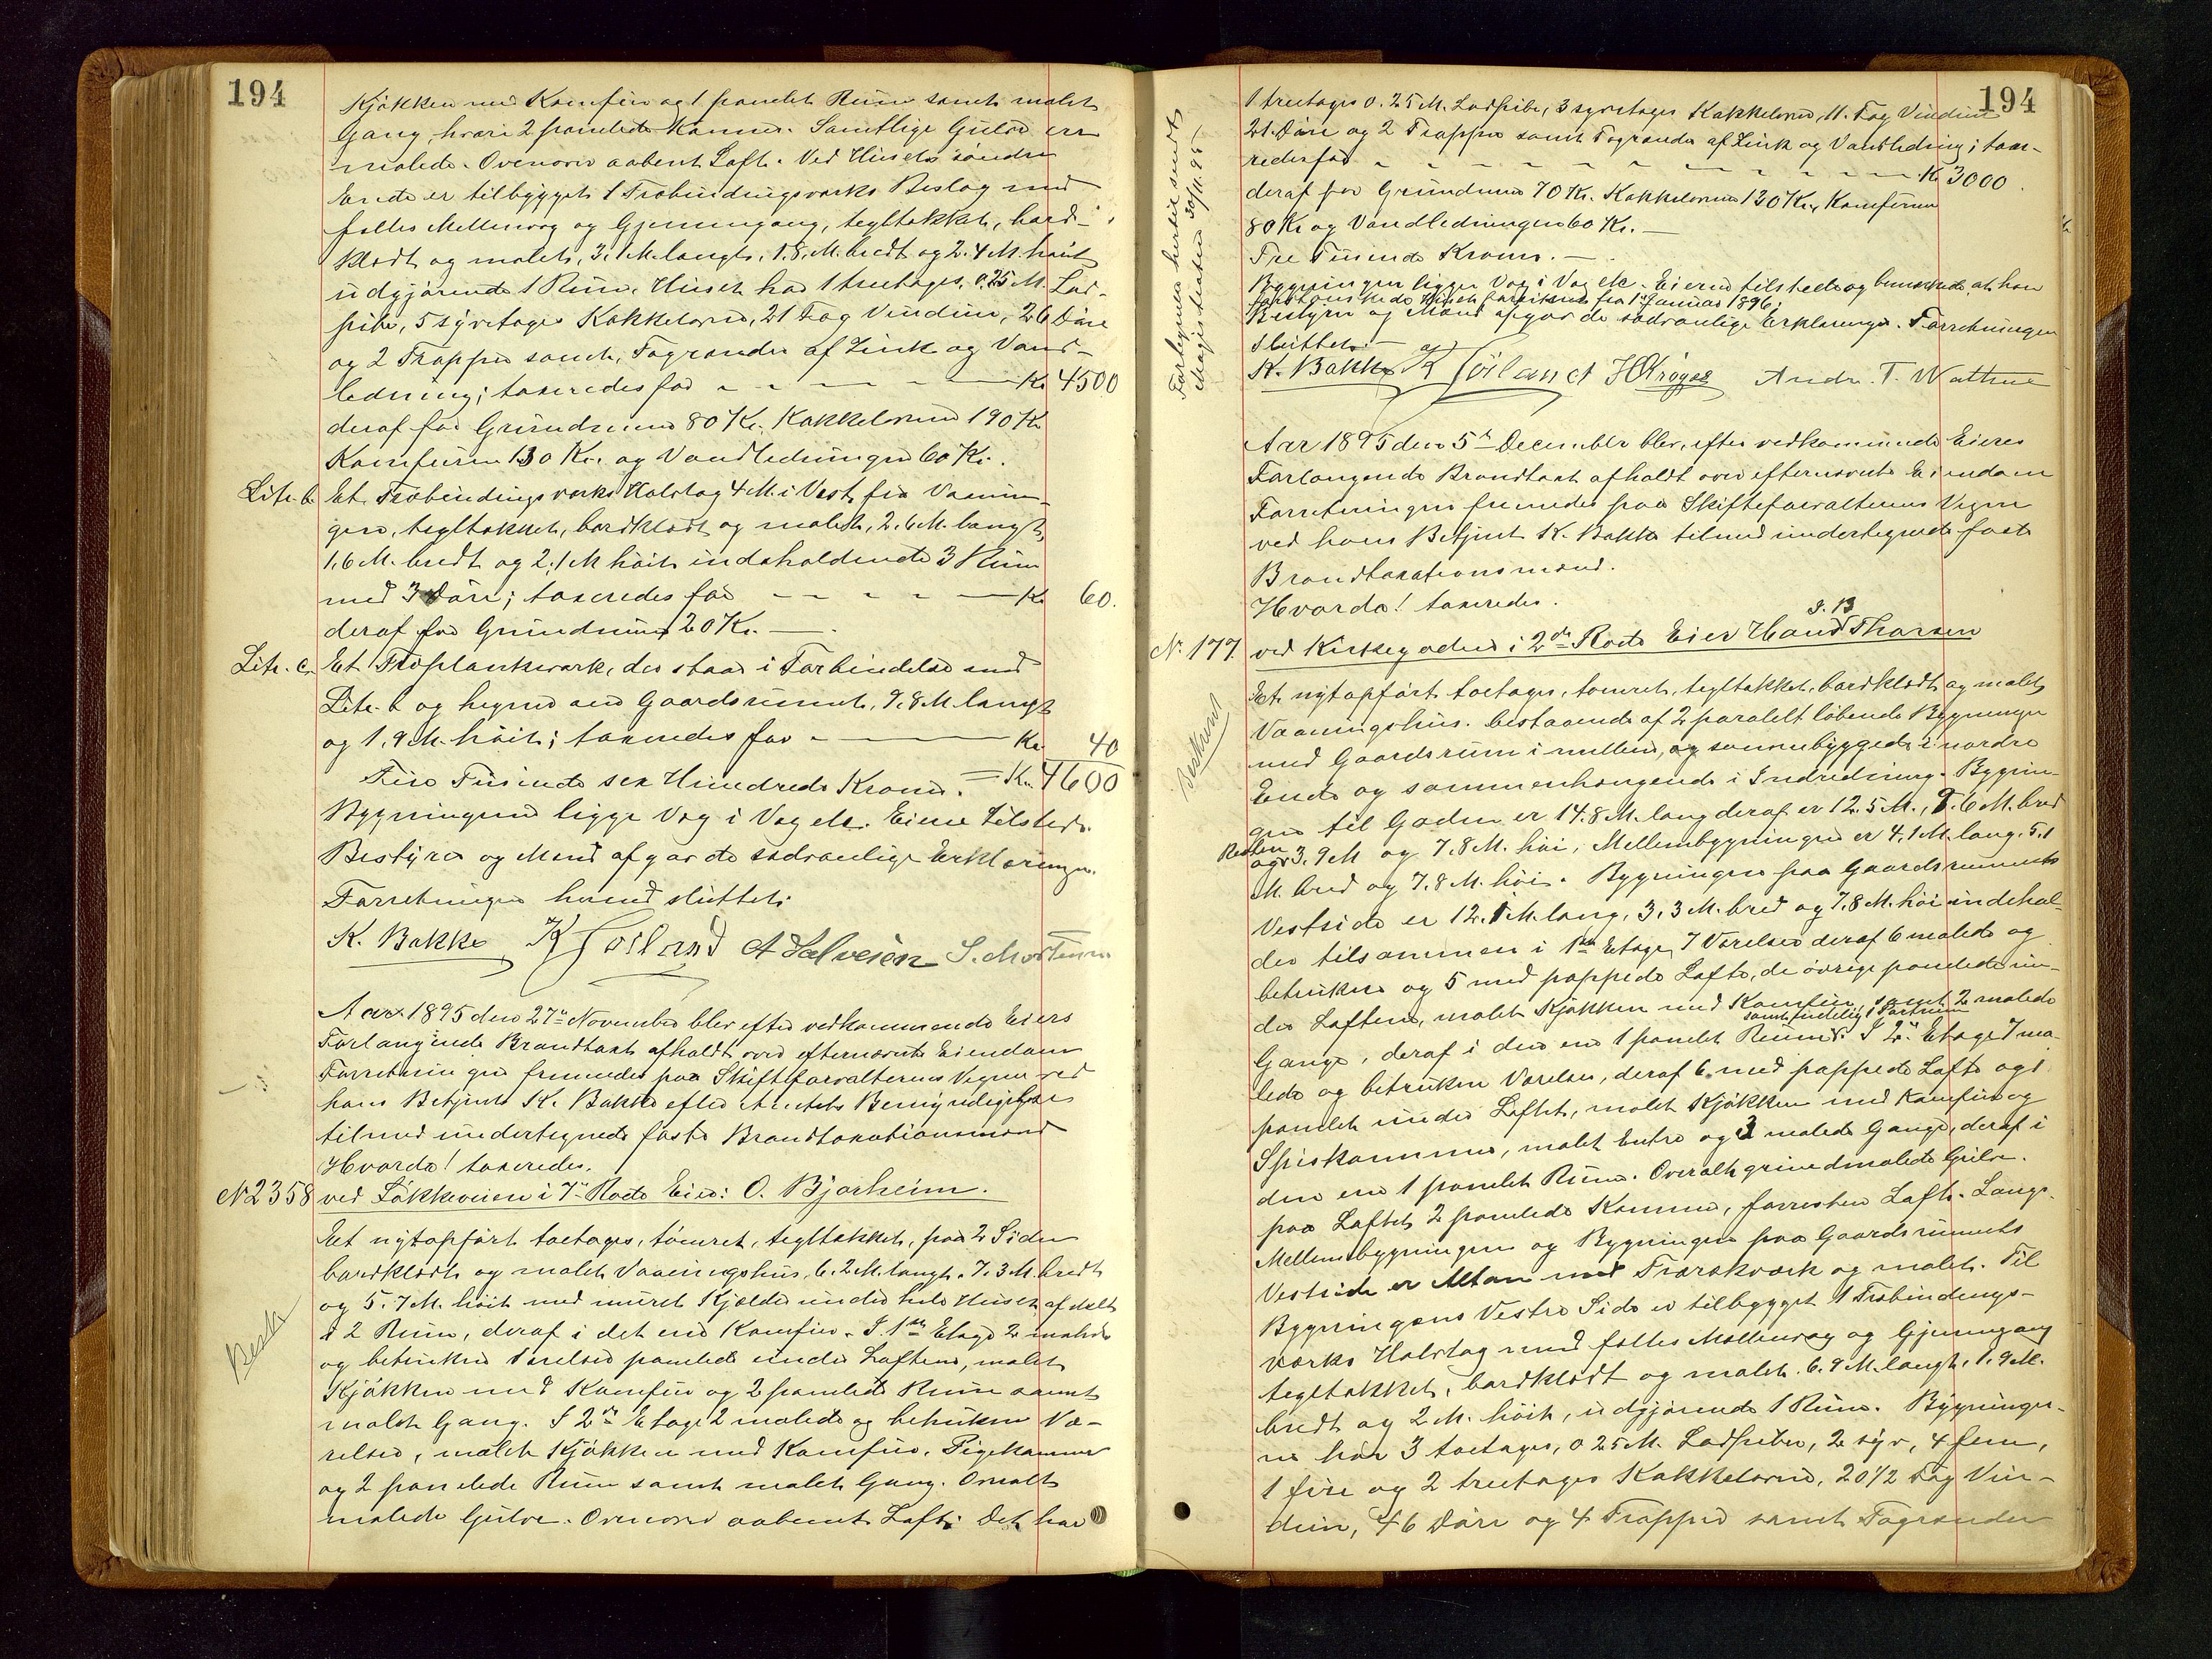 194
Kjøkken med Komfur og 1 panelet Rum samt malet
Gang, hvori 2 panelede Kamre. Samtlige Gulve ere
malede. Ovenover aabent Loft. Ved Husets søndre
Ende er tilbygget 1 Træbindingsværks Beslag med
fælles Mellemvæg og Gjennemgang, tegltækket, bord-
klædt og malet, 3,1 M. langt, 1,8 M. bredt og 2,4 M. høit
udgjørende 1 Rum. Huset har 1 treetages, 0.25 M. Lod-
pibe, 5 syvetages Kakkelovne, 21 Fag Vinduer, 26 Døre
og 2 Trapper samt Tagrender af Zink og Vand-
ledning; taxeredes for - - - - - Kr 4500
deraf for Grundmuren 80 Kr. Kakkelovnene 190 Kr
Komfurene 130 Kr. og Vandledningen 60 Kr.
Litr. b. Et Træbindingsværks Halvtag 4 M. i Vest fra Vaanin-
gen, tegltækket, bordklædt og malet, 2.6 M. langt,
1,6 M. bredt og 2,1 M høit indeholdende 3 Rum
med 3 Døre; taxeredes for - - - - - Kr 60.
deraf for Grundmuren 20 Kr. —
Litr. c. Et Træplankeværk, der staar i Forbindelse med
Litr. b og hegner om Gaardsrummet, 9,8 M. langt
og 1,9 M. høit; taxeredes for - — Kr 40
Fire Tusinde sex Hundrede Kroner. = Kr. 4600
Bygningerne ligge Væg i Væg etc. Eieren tilstede.
Bestyrer og Mænd afgav de sædvanlige Erklæringer.
Forretningen hermed sluttet.
K. Bakke K Høiland A Salvesen S. Mortensen
Aar 1895 den 27de November blev efter vedkommende Eiers
Forlangende Brandtaxt afholdt over efternævnte Eiendom
Forretningen fremmedes paa Skifteforvalterens Vegne ved
hans Betjent K. Bakke efter Amtets Bemyndigelse
tilmed undertegnede faste Brandtaxationsmænd
Hvorda! taxeredes.
No 2358 ved Løkkeveien i 7de Rode Eier: O. Bjorheim.
Et nyt opført toetages, tømret, tegltækket, paa 2 Sider
bordklædt og malet Vaaningshus, 6.2 M. langt, 7,3 M. bredt
og 5.7 M. høit med muret Kjælder under hele Huset, afdelt
i 2 Rum, deraf i det ene Komfur. I 1ste Etage 2 malede
og betrukne Værelser panelede under Loftene, malet
Kjøkken med Komfur og 2 panelede Rum samt
malet Gang. I 2den Etage 2 malede og betrukne Væ-
relser, malet Kjøkken med Komfur, Pigekammer
og 2 panelede Rum samt malet Gang. Overalt
malede Gulve. Ovenover aabent Loft. Det har
194
Forlegnen herbei sendt
Magistraten 30/11 95
1 treetages 0.25 M. Lodpibe, 3 syvetages Kakkelovne, 11. Fag Vinduer
21. Døre og 2 Trapper samt Tagrender af Zink og Vandledning; taxe-
redes for - - - - - Kr 3000.
deraf for Grundmuren 70 Kr. Kakkelovnene 130 Kr, Komfurene
80 Kr og Vandledningen 60 Kr. —
Tre Tusinde Kroner. —
Bygningen ligger Væg i Væg etc. Eieren tilstede og bemærkede, at han
forlangte Huset forsikret fra 1ste Januar 1896.
Bestyrer og Mænd afgav de sædvanlige Erklæringer. Forretningen
sluttet. —
K. Bakke K Høiland H Krøger Andr. T. Wathne
Aar 1895 den 5te December blev, efter vedkommende Eieres
Forlangende Brandtaxt afholdt over efternævnte Eiendom
Forretningen fremmedes paa Skifteforvalterens Vegne
ved hans Betjent K. Bakke tilmed undertegnede faste
Brandtaxationsmænd.
Hvorda! taxeredes.
No. 177 ved Kirkegaden i 2den Rode Eier Hans J. B Thorsen
Bestemt
Et nyt opført toetages, tømret, tegltækket, bordklædt og malet
Vaaningshus. bestaaende af 2 paralelt løbende Bygninger
med Gaardsrum i mellem, og sammenbyggede i nordre
Ende og sammenhængende i Indredning. Bygnin-
gen til Gaden er 14.8 M. lang deraf er 12.5 M., 7.6 M. bred
Resten 3.9 M og 7.8 M. høi, Mellembygningen er 4.1 M. lang. 5.1
M. bred og 7.8 M. høi. Bygningen paa Gaardsrummets
Vestside er 12.1 M. lang, 3.3 M. bred og 7.8 M. høi indehol-
der tilsammen i 1ste Etage 7 Værelser deraf 6 malede og
betrukne og 5 med pappede Lofte, de øvrige panelede un-
der Loftene, malet Kjøkken med Komfur, samt 2 malede
samt indelig 1 Portrum
Gange, deraf i den ene 1 panelet Rum. I 2den Etage 7 ma-
lede og betrukne Værelser, deraf 6 med pappede Lofte og 1
panelet under Loftet, malet Kjøkken med Komfur og
Spiskammer, malet Entre og 3 malede Gange, deraf i
den ene 1 panelet Rum. Overalt grundmalede Gulve.
paa Loftet 2 panelede Kamre, forresten Loft. Langs
Mellembygningen og Bygningen paa Gaardsrummets
Vestside er Altan med Trærækværk og malet. Til
Bygningens Vestre Side er tilbygget 1 Træbindings-
værks Halvtag med fælles Mellemvæg og Gjennemgang
tegltækket, bordklædt og malet. 6.9 M. langt, 1.9 M.
bredt og 2 M. høit, udgjørende 1 Rum. Bygninger-
ne har 3 toetages, 0.25 M. Lodpiber, 2 syv, 4 fem,
1 fire og 2 treetages Kakkelovne, 20 1/2 Fag Vin-
duer, 46 Døre og 4 Trapper samt Tagrender